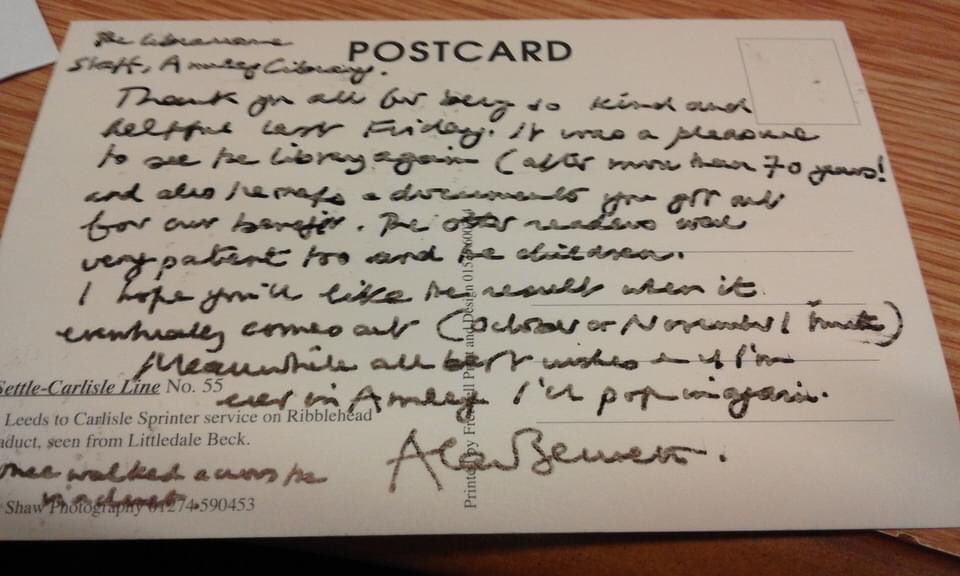 POSTCARD
The Librarians
Staff, Armley Library.
Thank you all for being so kind and
helpful last Friday. It was a pleasure
to see the library again (after more than 70 years!
and also the maps & documents you got out
for our benefit. The other readers were
very patient too and the children.
I hope you'll like the result when it
eventually comes out (October or November I think)
Meanwhile all best wishes & if I'm
ever in Armley I'll pop in again.
Alan Bennett.
Settle-Carlisle Line No. 55
Leeds to Carlisle Sprinter service on Ribblehead
aduct, seen from Littledale Beck.
once walked across the
viaduct.
Shaw Photography 01274 590453
Printed by Design